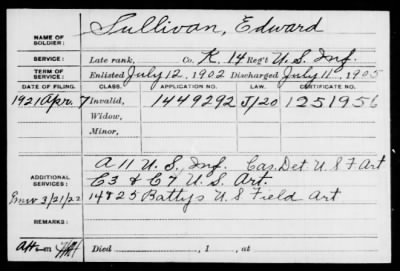 Sullivan, Edward
NAME OF SOLDIER:
SERVICE: Late rank, Co. K. 14 Reg't U.S. Inf.
TERM OF SERVICE: Enlisted July 12, 1902 Discharged July 11, 1905
DATE OF FILING. CLASS. APPLICATION NO. LAW. CERTIFICATE NO.
1921 Apr. 7 Invalid, 1449292 J/20 1251956
Widow,
Minor,
A 11 U.S. Inf. Cas. Det U S F Art
ADDITIONAL SERVICES: C3 & C7 U.S. Art.
3/21/22 14 & 25 Battys U S Field Art
REMARKS:
Died , 1 , at